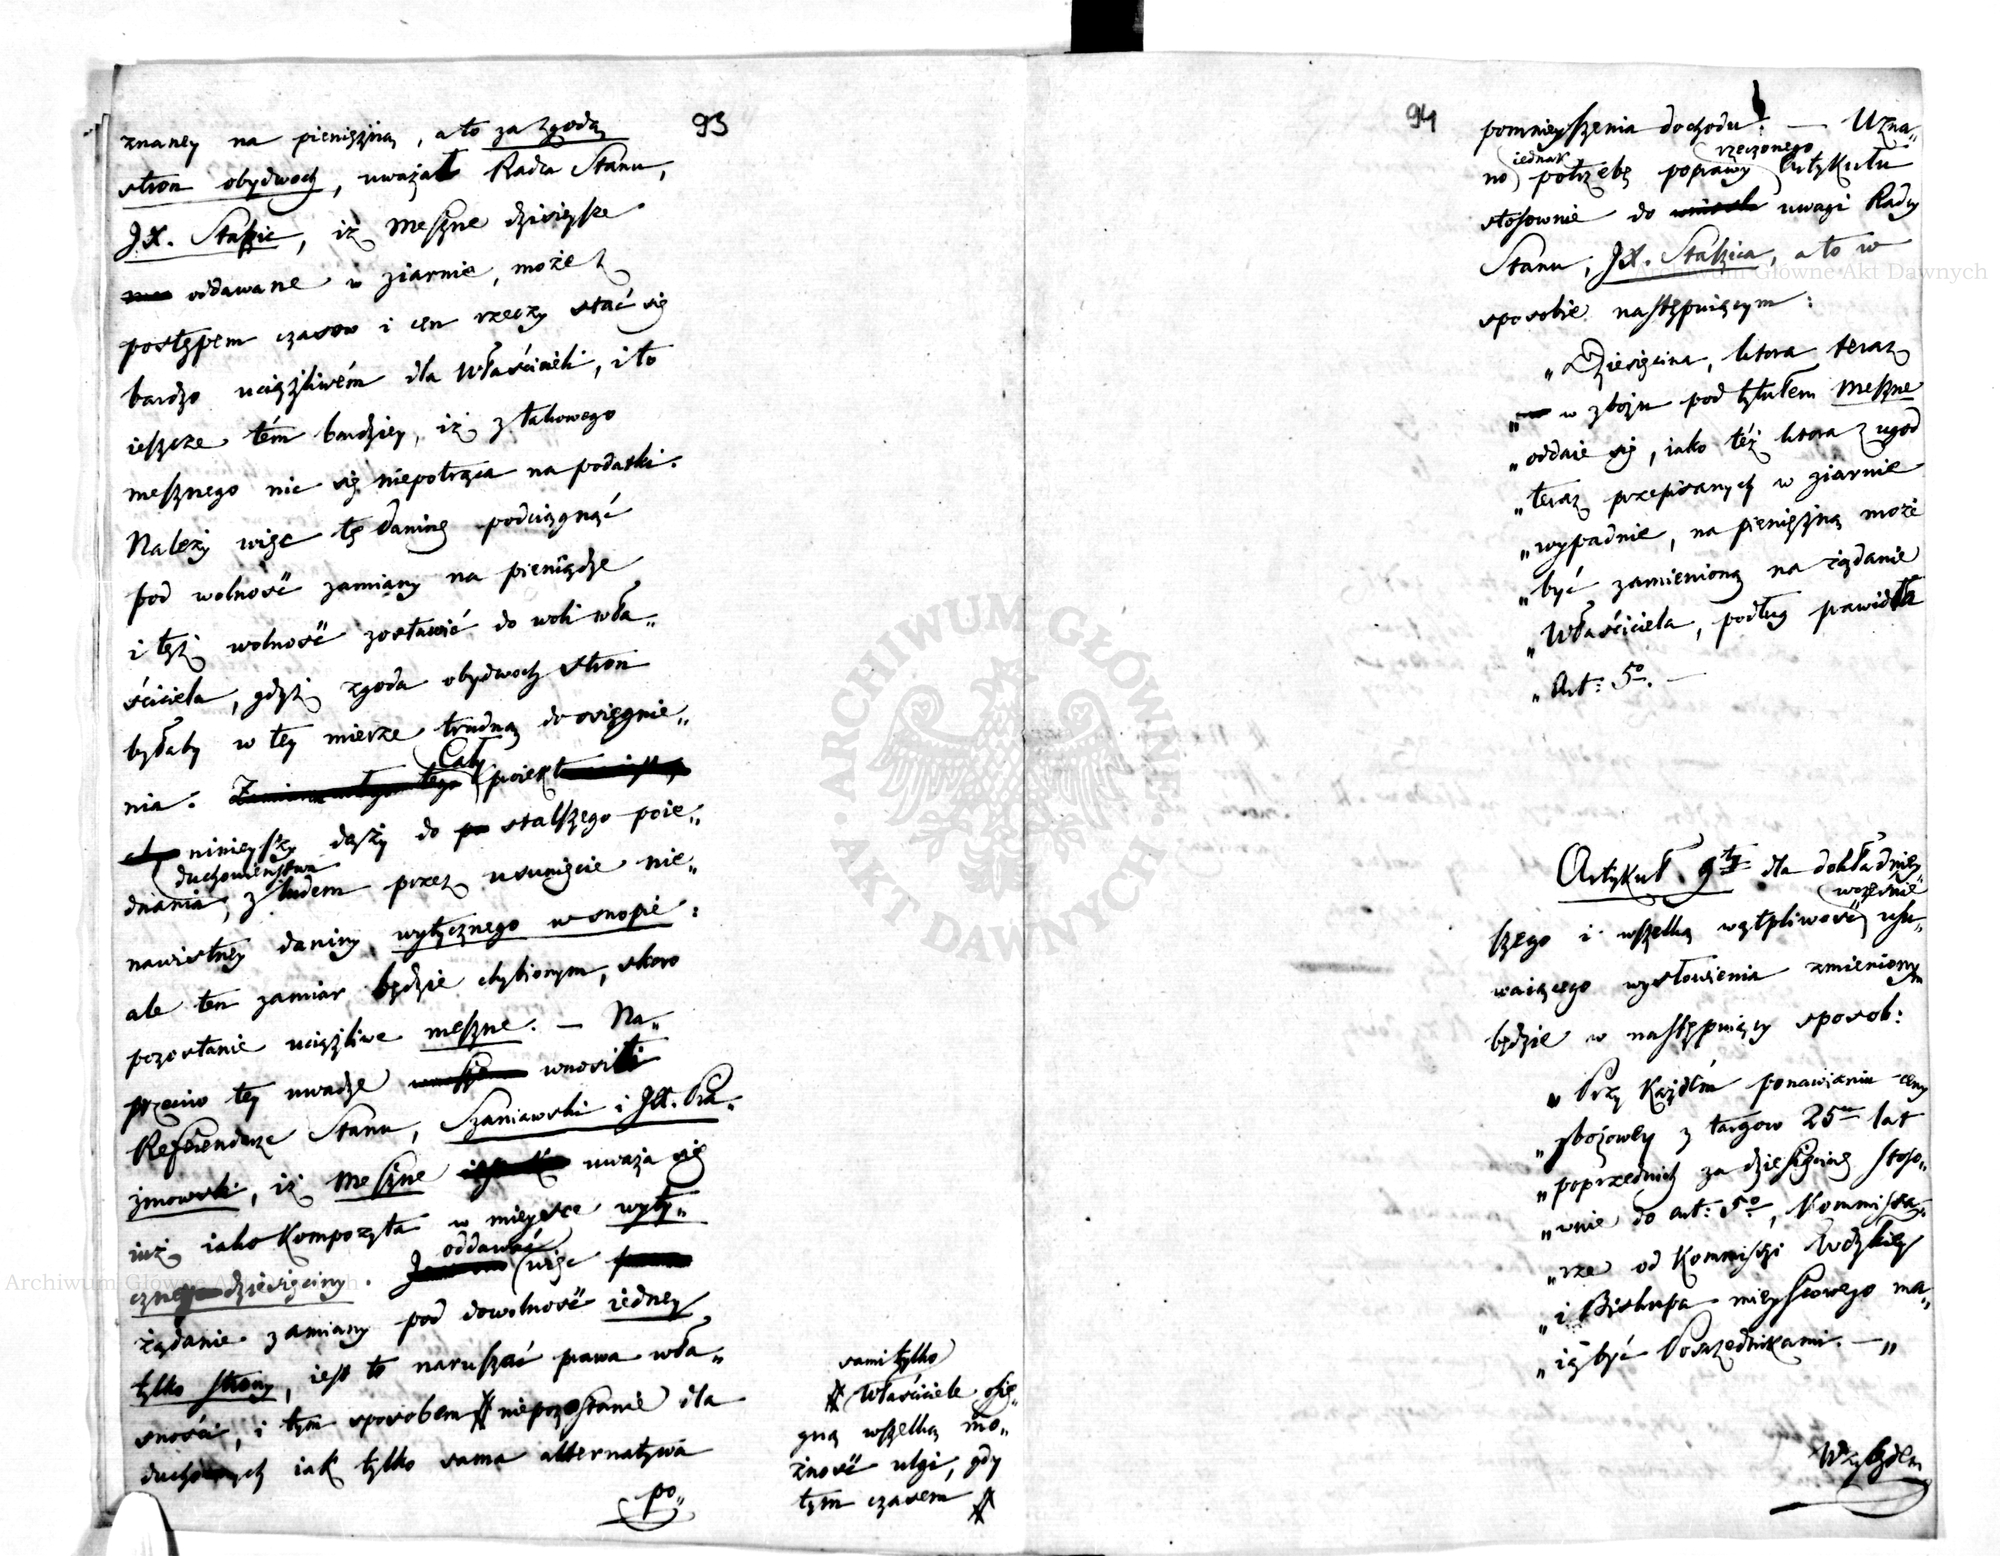 93
znaney na pieniężną, a to za zgodą
stron obydwoch, uważał Radca Stanu,
JX. Staszic, iż Meszne dzisieysze
oddawane w ziarnie, może z
postępem czasow i cen rzeczy stać się
bardzo uciążliwém dla Właścicieli, i to
ieszcze tém bardziey, iż z takowego
mesznego nic się niepotrąca na podatki.
Należy więc tę daninę podciągnąć
pod wolność zamiany na pieniądze
i tęż wolność zostawić do woli wła„
ściciela, gdyż zgoda obydwoch stron
byłaby w tey mierze trudną do osiągnie„
nia. Cały proiekt
ninieyszy dąży do stalszego poie„
dnania, duchowieństwa z ludem przez usunięcie nie„
nawistney daniny wytycznego w snopie:
ale ten zamiar będzie chybionym, skoro
pozostanie uciążliwe meszne. — Na„
przeciw tey uwadze wnosili
Referendarze Stanu, Szaniawski i JX. Pra„
żmowski, iż Meszne uważa się
iuż iako Kompozyta w mieysce wyty„
czney dziesięciny. oddawać więc
żądanie zamiany pod dowolność iedney
tylko strony, iest to naruszać prawa wła„
sności, i tym sposobem # niepozostanie dla
duchownych iak tylko sama alternatywa
po„
sami tylko
# Właściciele osią„
gną wszelką mo„
żność ulgi, gdy
tym czasem #
94
pomnieyszenia dochodu: — Uzna„
no iednak potrzebę poprawy rzeczonego Artykułu
stosownie do uwagi Radcy
Stanu, JX. Staszica, a to w
sposobie następuiącym:
„Dziesięcina, ktora teraz
„w zbożu pod tytułem Meszne
„oddaie się, iako też ktora z ugod
„teraz przepisanych w ziarnie
„wypadnie, na pieniężną może
„być zamienioną na żądanie
„Właściciela, podług prawideł
„Art: 5°. —
Artykuł 9ty dla dokładniey„
szego i wszelką wątpliwość wcześnie usu„
waiącego wysłowienia zmieniony
będzie w następuiący sposob:
„Przy Każdém ponawianiu ceny
„zbożowey z targow 25u lat
„poprzednich za dziesięcinę stoso„
„wnie do art: 5°, Kommissa„
„rze od Kommissyi Rządzkiey
„i Biskupa mieyscowego ma„
„ią być Pośrzednikami. — „
Wszystkim